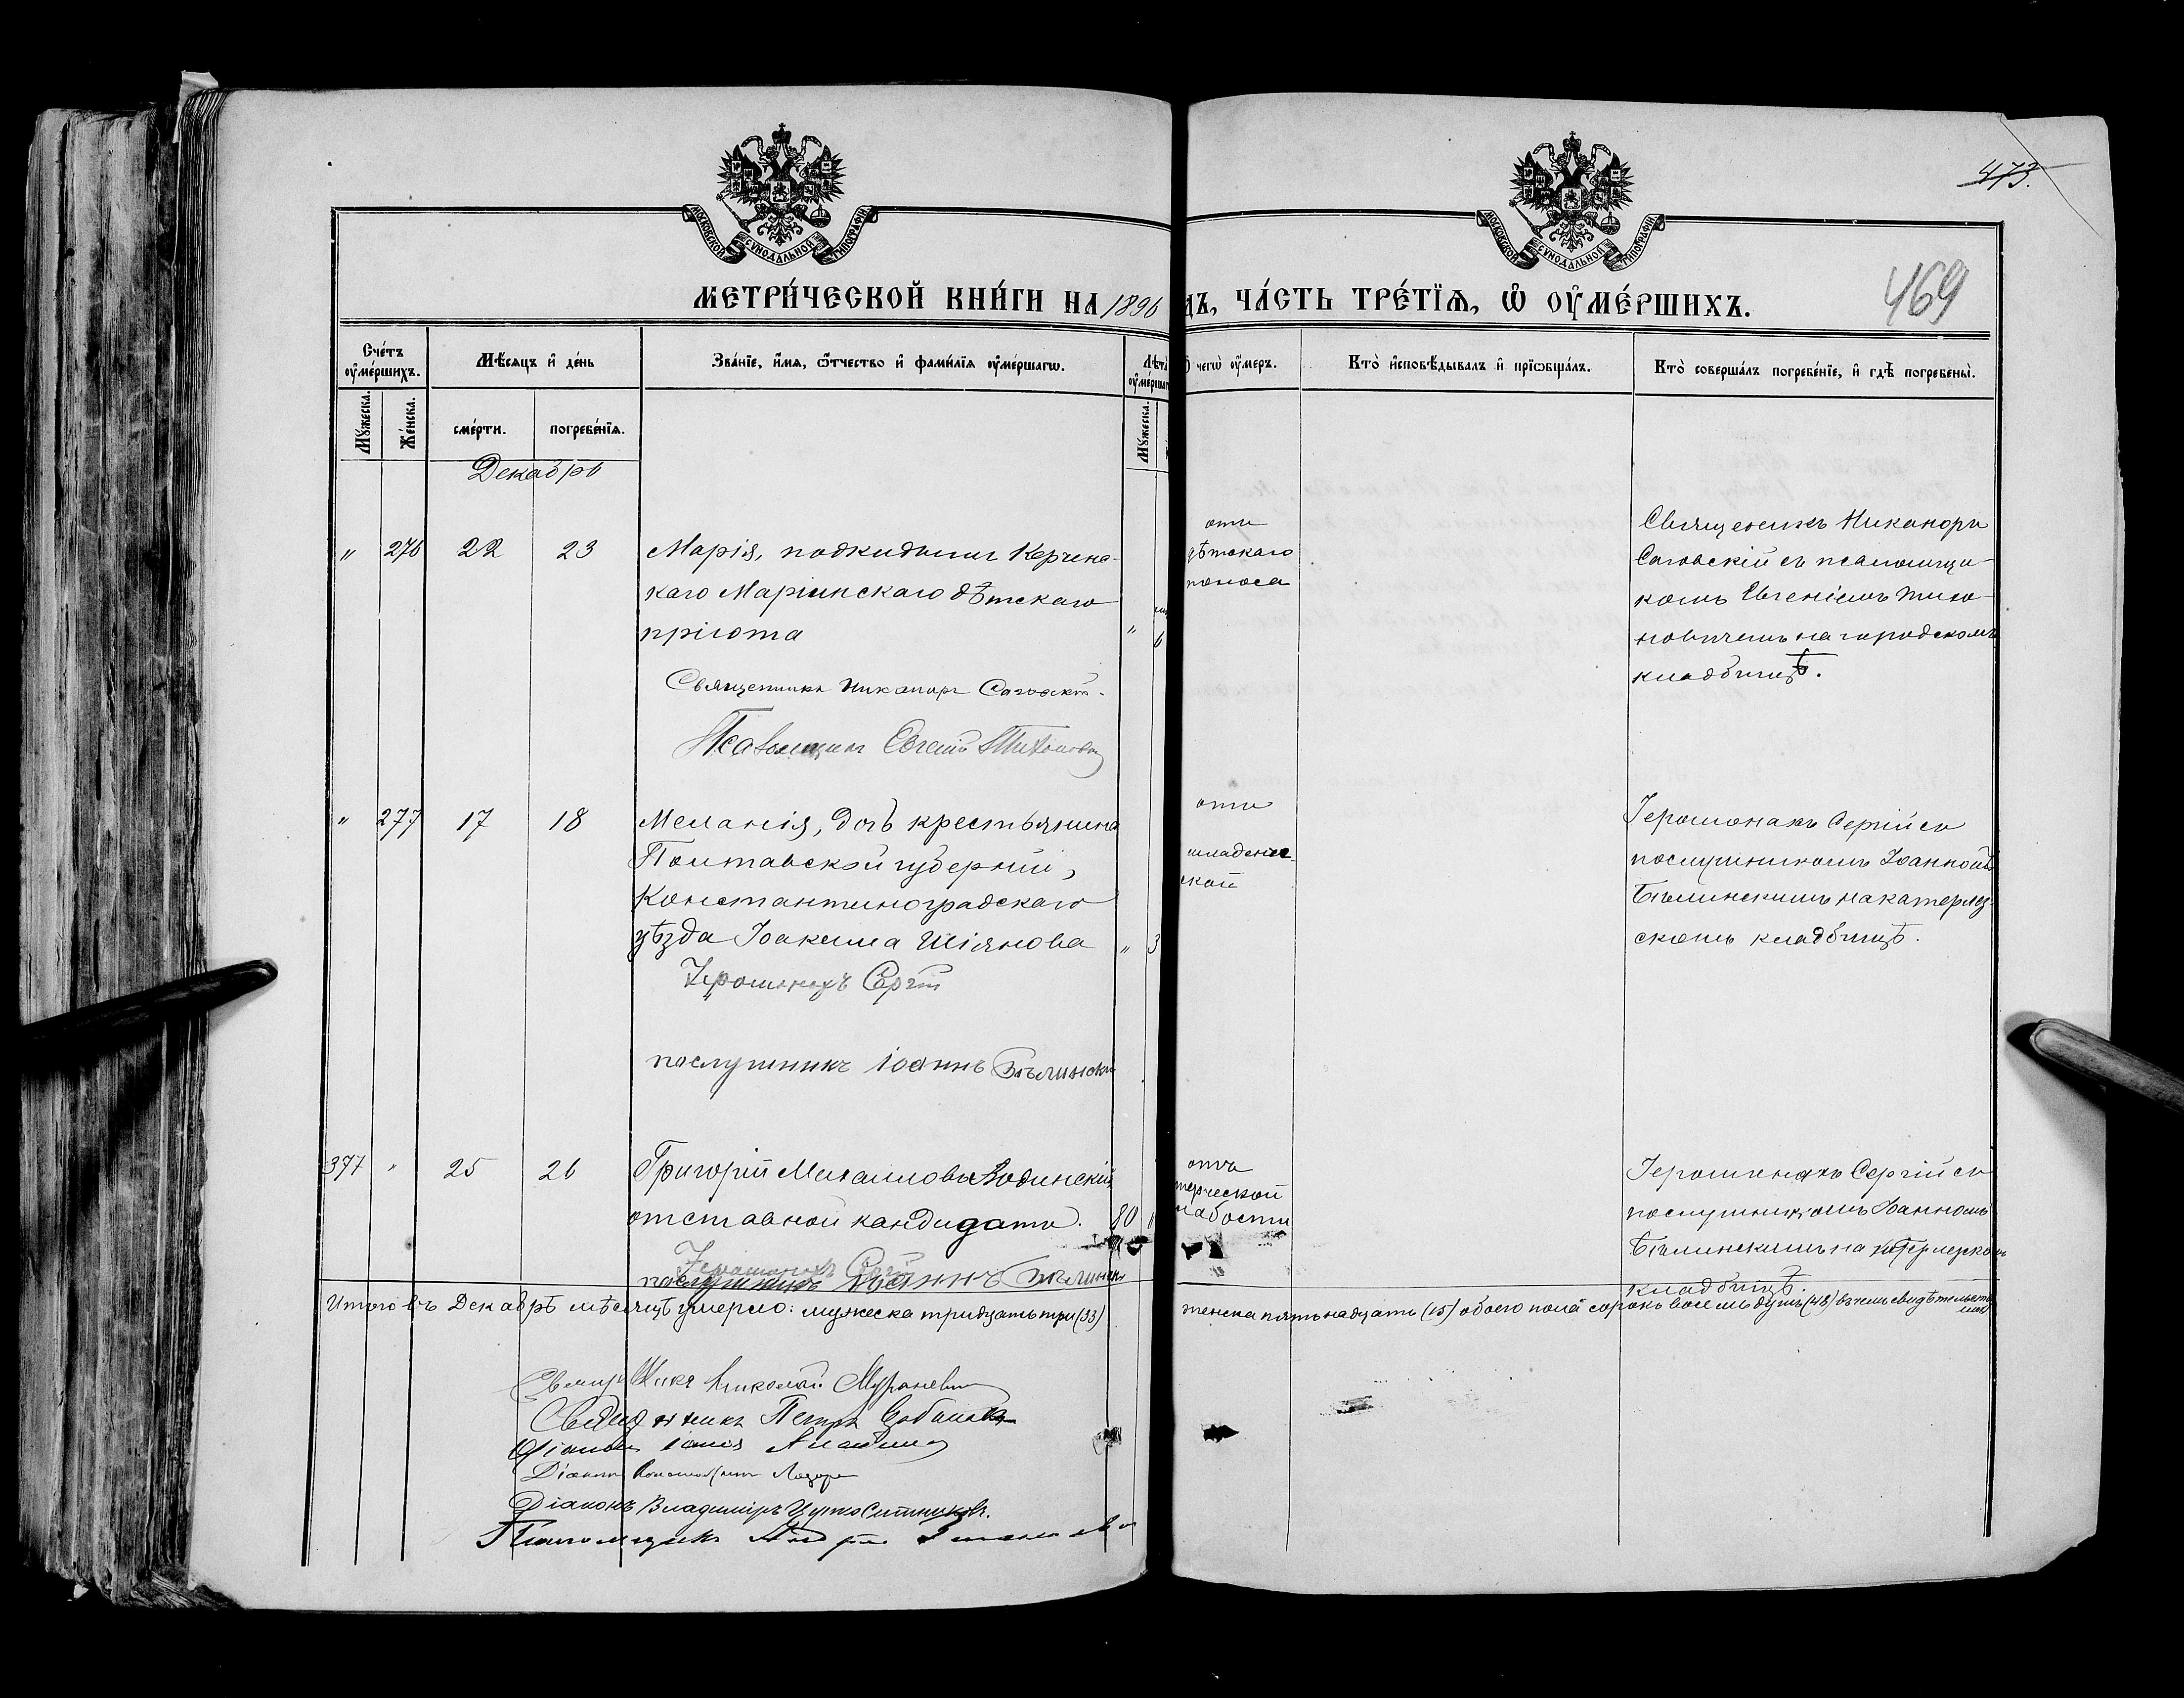 473.
469
МОСКОВСКОЙ СѴНОДАЛЬНОЙ ТИПОГРАФІИ
МОСКОВСКОЙ СѴНОДАЛЬНОЙ ТИПОГРАФІИ
МЕТРИ́ЧЕСКОЙ КНИ́ГИ НА 1896
ДЪ, ЧА́СТЬ ТРЕ́ТЇѦ, Ѡ ОУ҆МЕ́РШИХЪ.
Сче́тъ оу҆ме́ршихъ.
Мѣ́сѧцъ и҆ де́нь
Зва́нїе, и҆́мѧ, ѻ҆́тчество и҆ фами́лїѧ оу҆ме́ршагѡ.
Лѣта̀
оу҆ме́ршаг
ѿ чегѡ̀ оу҆́меръ.
Кто̀ и҆сповѣ́дывалъ и҆ прїѡбща́лъ.
Кто̀ соверша́лъ погребе́нїе, и҆ гдѣ̀ погребены̀.
Мꙋ́жеска.
Же́нска.
сме́рти.
погребе́нїѧ.
Мꙋ́жеска.
Декабрь
" 276 22 23
Марія, подкидышъ Керченс-
каго Маріинскаго дѣтскаго
пріюта
" 6
Священникъ Никаноръ Саговскій
Псаломщикъ Евгеній Тихоновичъ
отъ
дѣтскаго
поноса
Священникъ Никаноръ
Саговскій съ псаломщи-
комъ Евгеніемъ Тихо-
новичемъ на городскомъ
кладбищѣ.
" 277 17 18
Меланія, дочь крестьянина
Полтавской губерніи,
Константиноградскаго
уѣзда Іоакима Шіянова
" 3
Іеромонахъ Сергій
послушникъ іоаннъ Бѣлинскій
отъ
младенчес-
ской
Іеромонахъ Сергій съ
послушникомъ Іоанномъ
Бѣлинскимъ на катерлез-
скомъ кладбищѣ.
377 " 25 26
Григорій Михаиловъ Водинскій
отставной кандидатъ. 80 "
Іеромонахъ Сергій
послушникъ іоаннъ Бѣлинскій
отъ
терческой
слабости
Іеромонахъ Сергій съ
послушникомъ Іоанномъ
Бѣлинскимъ на катерлезскомъ
кладбищѣ.
Итого въ Декабрѣ мѣсяцѣ умерло: мужеска тридцать три (33)
женска пятнадцать (15) обоего пола сорокъ восемь душъ (48) въ чемъ свидѣтельст-
Священникъ Николай
Священникъ Петръ
Діаконъ
Діаконъ Константинъ
Діаконъ Владиміръ
Псаломщикъ Андрей